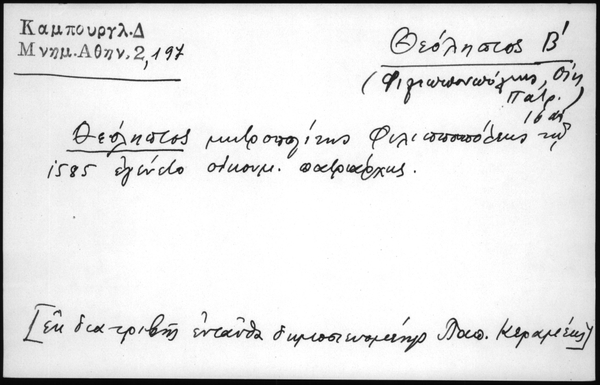 Καμπουργλ.Δ
Μνημ.Αθην.2,197
Θεόληπτος Β'
(Φιλιππουπόλεως, Οἰκ.
Πατρ.
16 αι)
Θεόληπτος μητροπολίτης Φιλιππουπόλεως τῷ
1585 ἐγένετο οἰκουμ. πατριάρχης.
[ἐκ διατριβῆς ἐνταῦθα δημοσιευομένης Παπ. Κεραμέως]